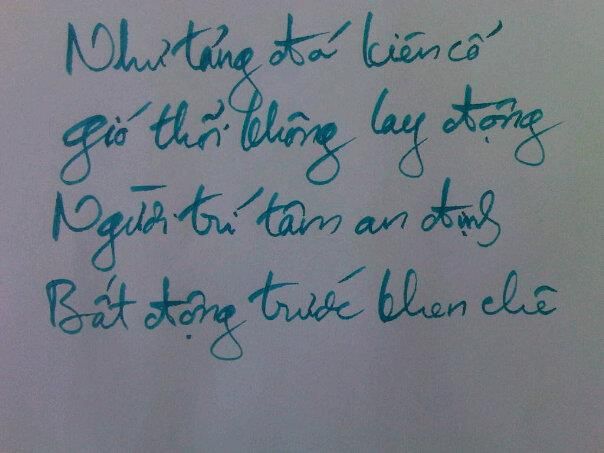 Như tảng đá kiên cố
gió thổi không lay động
Người trí tâm an định
Bất động trước khen chê